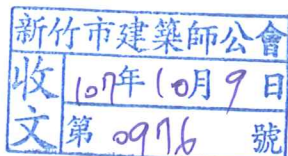 新竹市建築師公會
收文
107年10月9日
第0976號